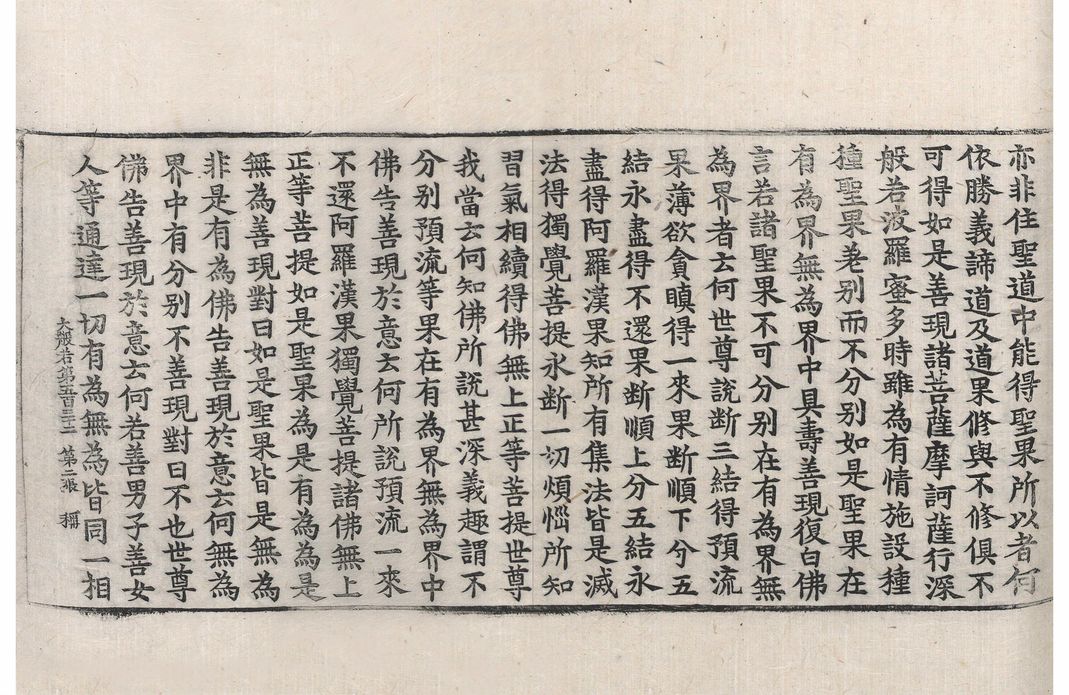 亦非住聖道中能得聖果所以者何
依勝義諦道及道果修與不修俱不
可得如是善現諸菩薩摩訶薩行深
般若波羅蜜多時雖為有情施設種
種聖果差別而不分別如是聖果在
有為界無為界中具壽善現復白佛
言若諸聖果不可分別在有為界無
為界者云何世尊說斷三結得預流
果薄欲貪瞋得一來果斷順下分五
結永盡得不還果斷順上分五結永
盡得阿羅漢果知所有集法皆是滅
法得獨覺菩提永斷一切煩惱所知
習氣相續得佛無上正等菩提世尊
我當云何知佛所說甚深義趣謂不
分別預流等果在有為界無為界中
佛告善現於意云何所說預流一來
不還阿羅漢果獨覺菩提諸佛無上
正等菩提如是聖果為是有為為是
無為善現對曰如是聖果皆是無為
非是有為佛告善現於意云何無為
界中有分別不善現對曰不也世尊
佛告善現於意云何若善男子善女
人等通達一切有為無為皆同一相
大般若第五百三十二 第二張 稱